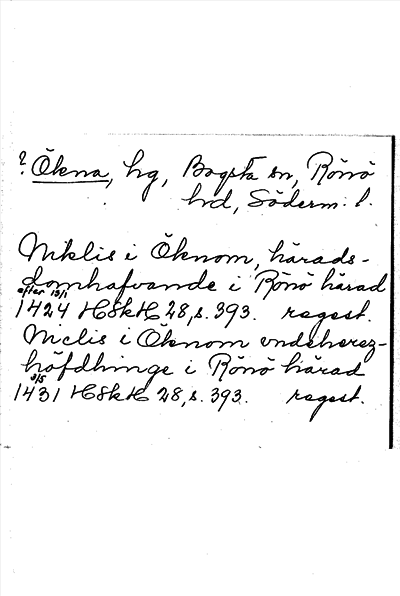 ? Ökna, hg, Bogsta sn, Rönö
hd, Söderm. l.
Niklis i Öknom, härads-
domhafvande i Rönö härad
efter 13/1
1424 HSkH 28, s. 393. regest.
Niclis i Öknom vndeherez-
höfdhinge i Rönö härad
3/5
1431 HSkH 28, s. 393. regest.